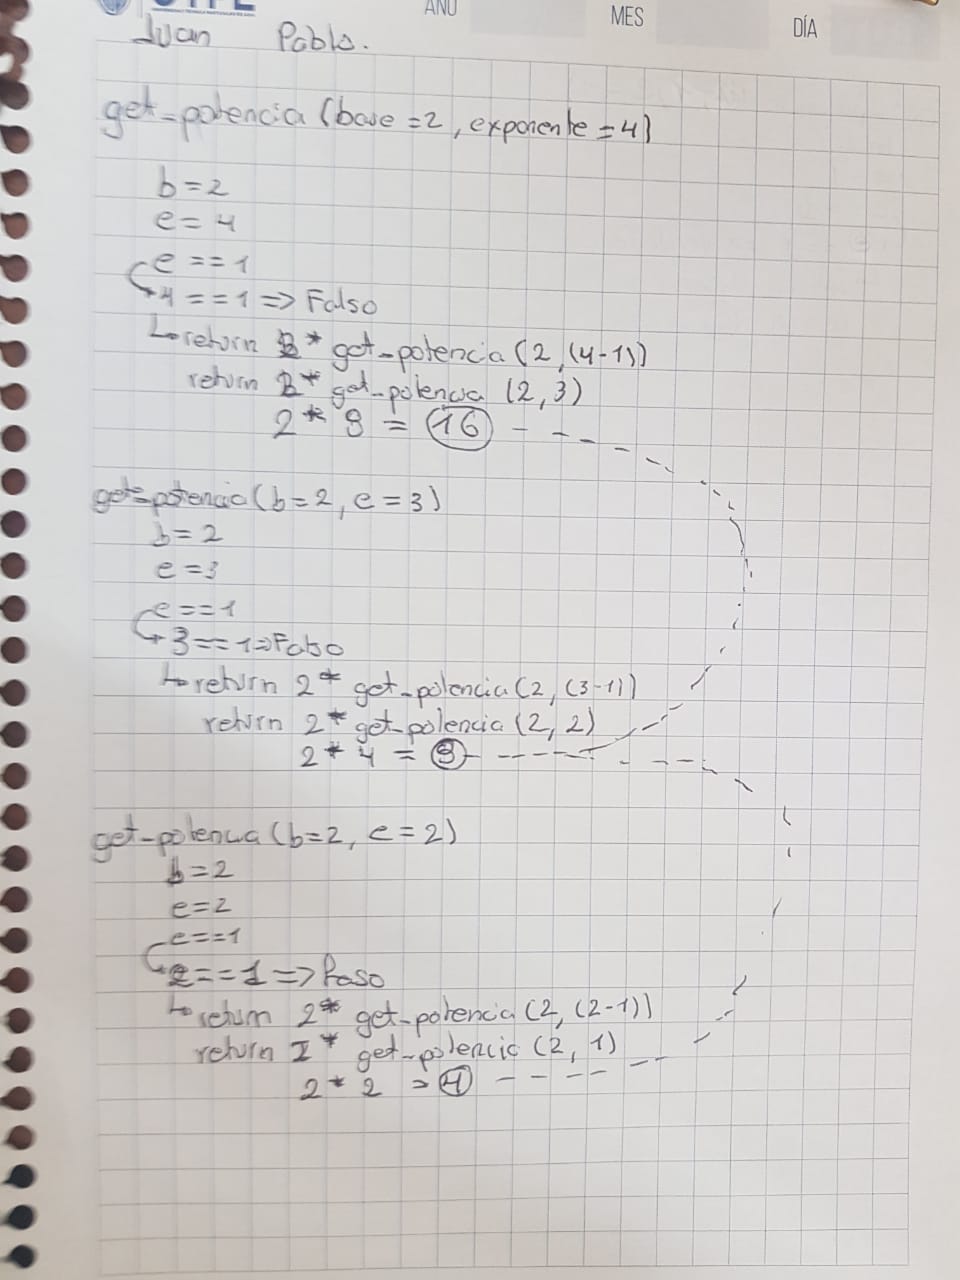 AÑO MES DÍA
Juan Pablo.
get-potencia (base = 2, exponente = 4)
b = 2
e = 4
e == 1
4 == 1 => Falso
return 2 * get-potencia (2, (4-1))
return 2 * get-potencia (2, 3)
2 * 8 = 16
get-potencia (b = 2, e = 3)
b = 2
e = 3
e == 1
3 == 1 => Falso
return 2 * get-potencia (2, (3-1))
return 2 * get-potencia (2, 2)
2 * 4 = 8
get-potencia (b=2, e = 2)
b = 2
e = 2
e == 1
2 == 1 => Faso
return 2 * get-potencia (2, (2-1))
return 2 * get-potencia (2, 1)
2 * 2 = 4